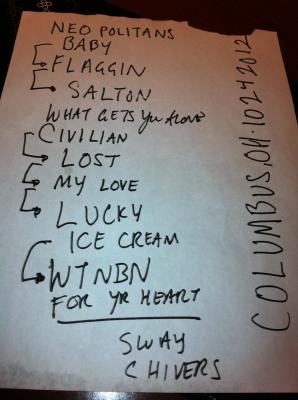 NEO POLITANS
BABY
FLAGGIN
SALTON
WHAT GETS YOU ALONG
CIVILIAN
LOST
MY LOVE
LUCKY
ICE CREAM
WTNBN
FOR YR HEART
SWAY
CHIVERS
COLUMBUS, OH • 10 24 2012